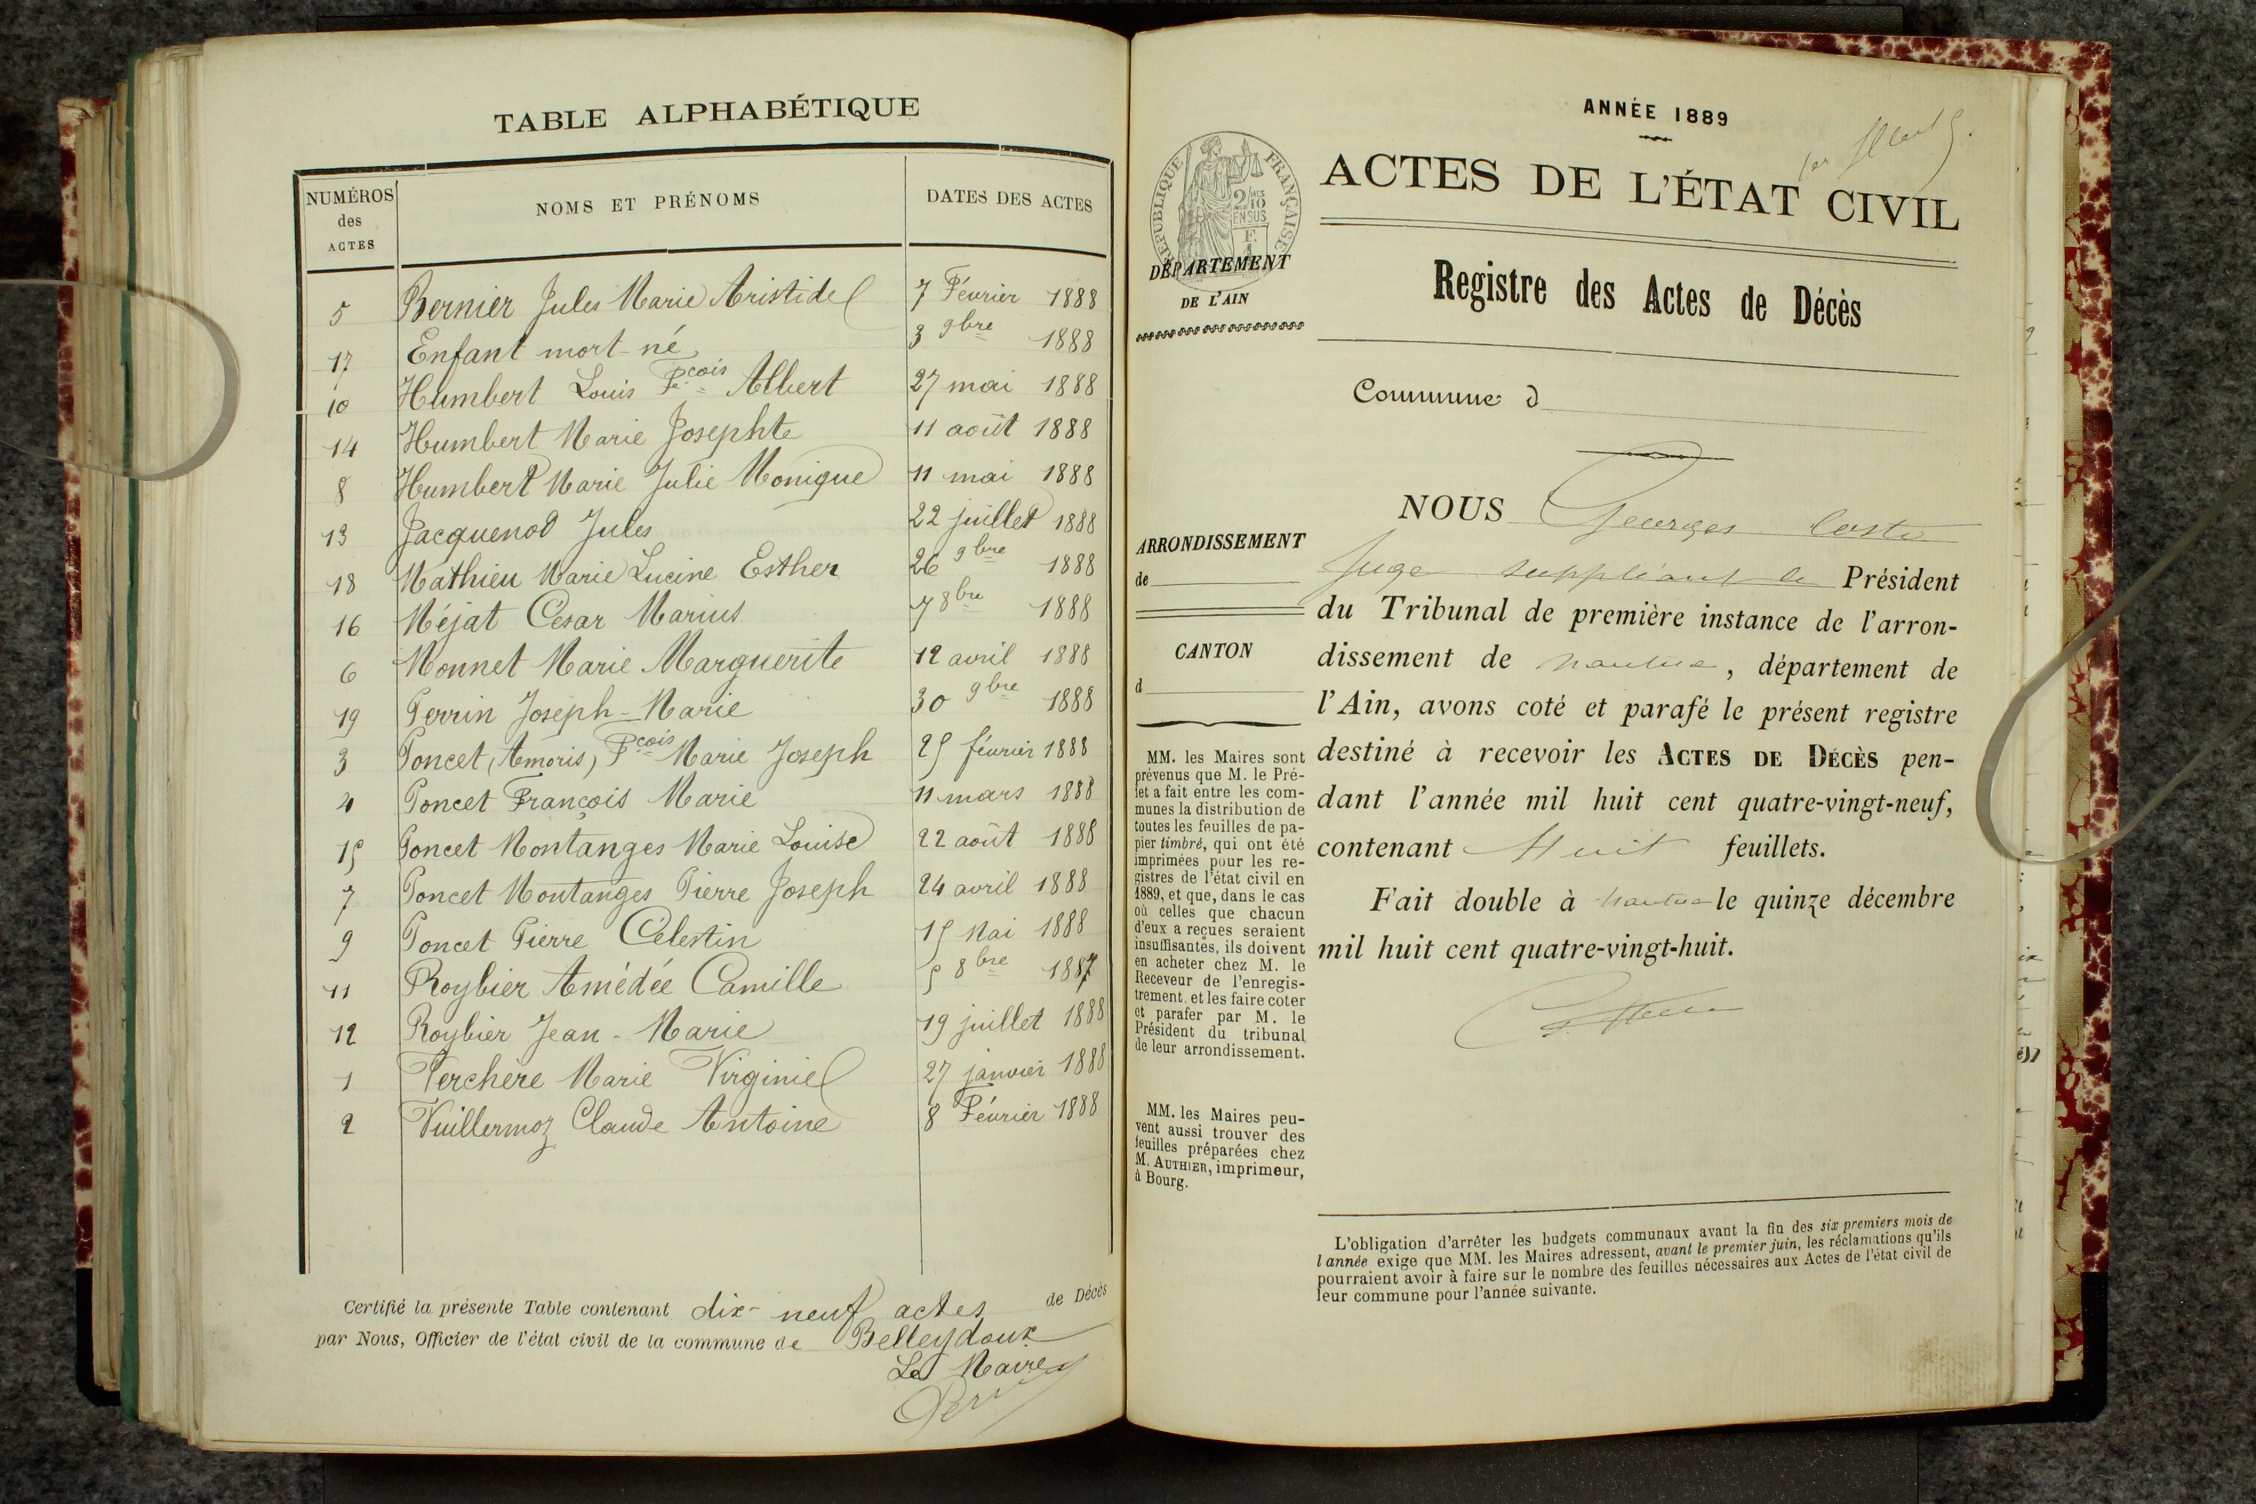 TABLE ALPHABÉTIQUE
NUMÉROS des ACTES NOMS ET PRÉNOMS DATES DES ACTES
5 Bernier Jules Marie Aristide 7 Février 1888
17 Enfant mort-né 3 9bre 1888
10 Humbert Louis Fçois Albert 27 mai 1888
14 Humbert Marie Josephte 11 août 1888
8 Humbert Marie Julie Monique 11 mai 1888
13 Jacquenod Jules 22 juillet 1888
18 Mathieu Marie Lucine Esther 26 9bre 1888
16 Méjat César Marius 7 8bre 1888
6 Monnet Marie Marguerite 12 avril 1888
19 Perrin Joseph-Marie 30 9bre 1888
3 Poncet, (Amoris) Fçois Marie Joseph 25 février 1888
4 Poncet François Marie 11 mars 1888
15 Poncet Montanges Marie Louise 22 août 1888
7 Poncet Montanges Pierre Joseph 24 avril 1888
9 Poncet Pierre Célestin 15 Mai 1888
11 Roybier Amédée Camille 5 8bre 1887
12 Roybier Jean-Marie 19 juillet 1888
1 Verchère Marie Virginie 27 janvier 1888
2 Vuillermoz Claude Antoine 8 Février 1888
Certifié la présente Table contenant dix-neuf actes de Décès
par Nous, Officier de l'état civil de la commune de Belleydoux
Le Maire
ANNÉE 1889
ACTES DE L'ÉTAT CIVIL
RÉPUBLIQUE FRANÇAISE
2/10 EN SUS
DÉPARTEMENT
DE L'AIN
Registre des Actes de Décès
Commune d
ARRONDISSEMENT
de
CANTON
d
MM. les Maires sont
prévenus que M. le Pré-
fet a fait entre les com-
munes la distribution de
toutes les feuilles de pa-
pier timbré, qui ont été
imprimées pour les re-
gistres de l'état civil en
1889, et que, dans le cas
où celles que chacun
d'eux a reçues seraient
insuffisantes, ils doivent
en acheter chez M. le
Receveur de l'enregis-
trement, et les faire coter
et parafer par M. le
Président du tribunal
de leur arrondissement.
MM. les Maires peu-
vent aussi trouver des
feuilles préparées chez
M. AUTHIER, imprimeur,
à Bourg.
NOUS Georges
Juge suppléant le Président
du Tribunal de première instance de l'arron-
dissement de nantua, département de
l'Ain, avons coté et parafé le présent registre
destiné à recevoir les ACTES DE DÉCÈS pen-
dant l'année mil huit cent quatre-vingt-neuf,
contenant Huit feuillets.
Fait double à nantua le quinze décembre
mil huit cent quatre-vingt-huit.
L'obligation d'arrêter les budgets communaux avant la fin des six premiers mois de
l'année exige que MM. les Maires adressent, avant le premier juin, les réclamations qu'ils
pourraient avoir à faire sur le nombre des feuilles nécessaires aux Actes de l'état civil de
leur commune pour l'année suivante.